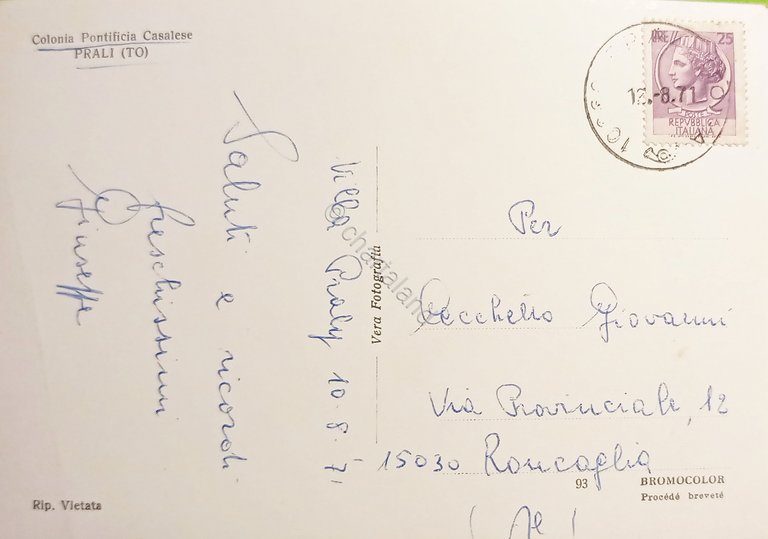 Colonia Pontificia Casalese
PRALI (TO)
Villa Praly 10.8.71
Saluti e ricordi
freschissimi
Giuseppe
Vera Fotografia
LIRE 25
POSTE
REPVBBLICA
ITALIANA
12.-8.71
Per
Cecchetto Giovanni
Via Provinciale, 12
15030 Roncaglia
(Al)
93
BROMOCOLOR
Procédé breveté
Rip. Vietata